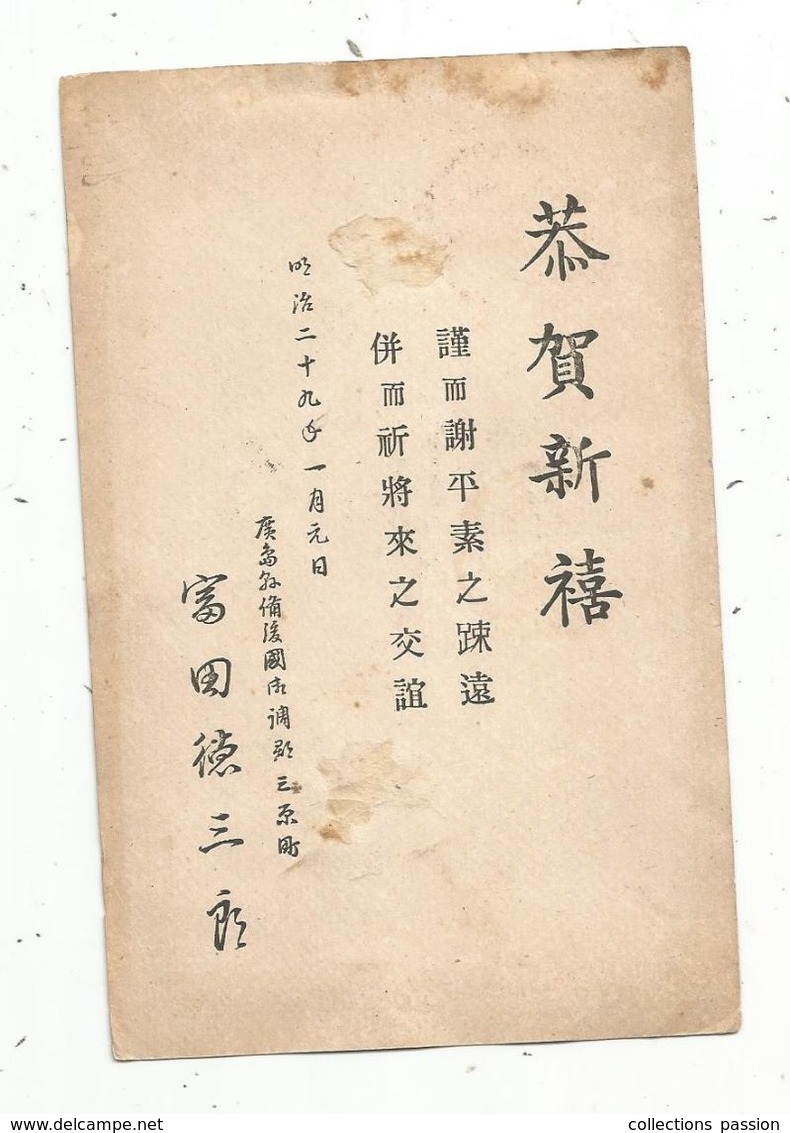 恭賀新禧
謹而謝平素之踈遠
併而祈將來之交誼
明治二十九年一月元日
廣島縣備後國御調郡三原町
富田德三郎
collections passion